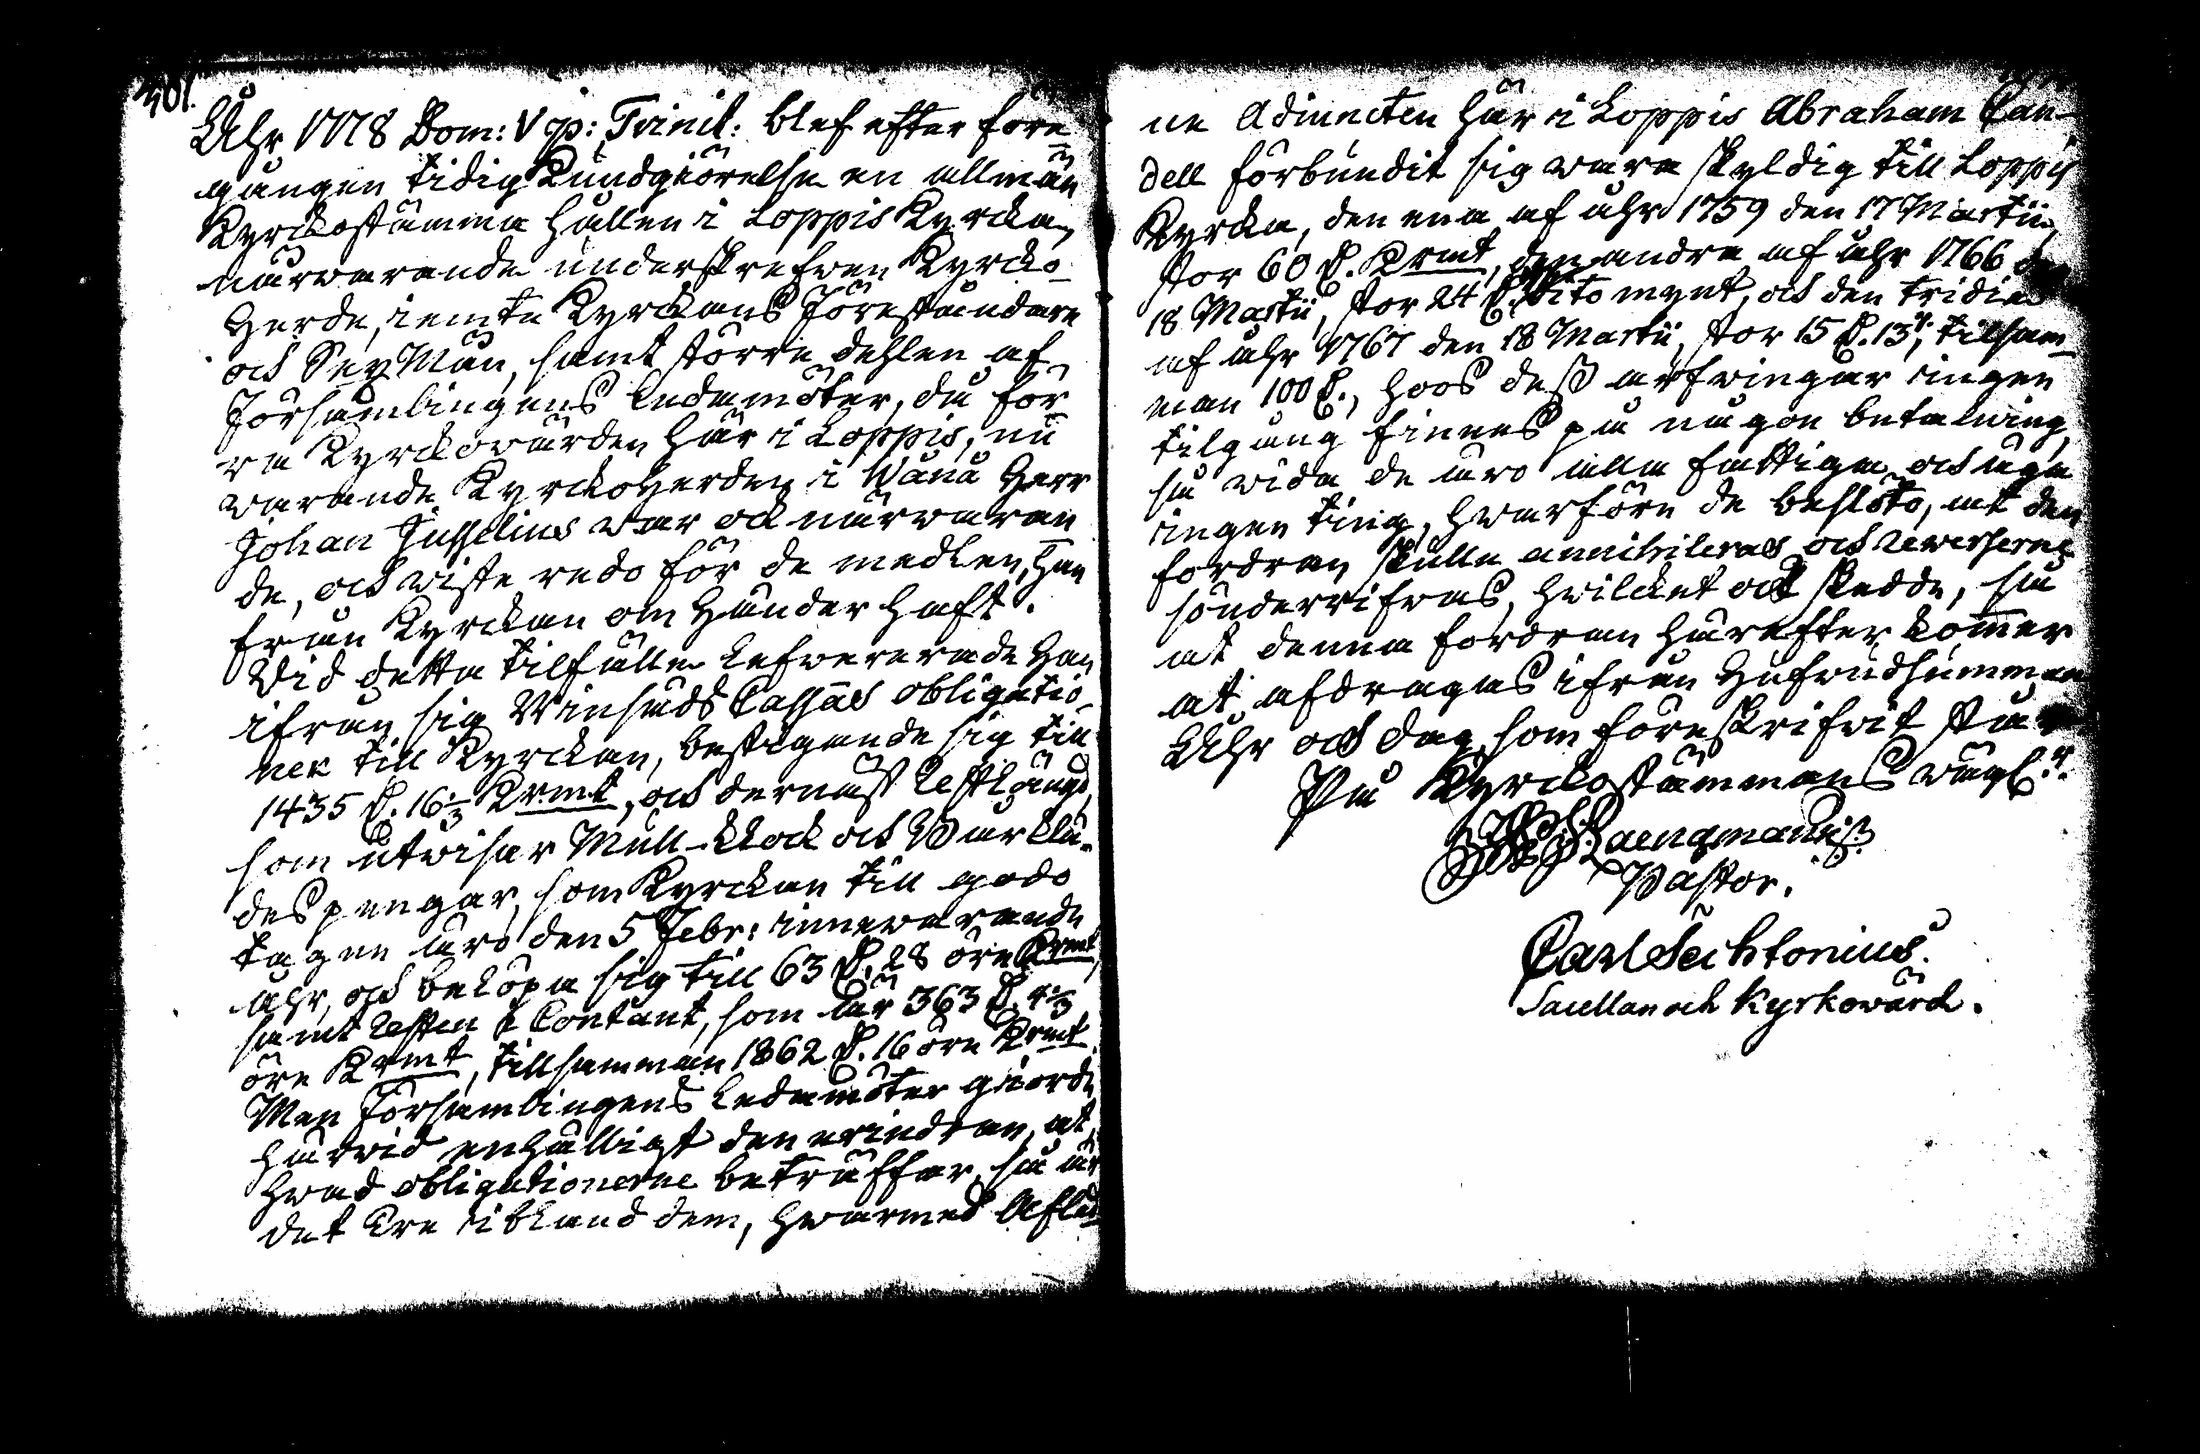 401.
Åhr 1778 Dom: V p: Trinit: blef efter före-
gången tidig Kundgiörelse en allmän
Kyrckostämma hållen i Loppis Kyrcka,
närvarande underskrefven Kyrcko-
Herde, iemte Kyrckans Föreståndare
och Sex Män, samt större dehlen af
Församlingens Ledamöter, då för-
ra Kyrckovärden här i Loppis, nu
varande Kyrckoherden i Wånå Herr
Johan Jusselius var ock närvaran
de, och viste redo för de medlen, han
från Kyrckan om händer haft.
Vid detta tilfälle lefvererade han
ifrån sig Vinsäds Cassans obligatio-
ner till Kyrckan, bestigande sig till
1435 D. 16 2/3 Krmt, och dernäst Restlängd,
som utvisar Mull- Klock och Bårklä-
des pengar, som Kyrckan till godo
tagne äro den 5 Febr: innevarande
åhr, och belöpa sig till 63 D. 28 öre Krmt,
samt resten i Contant, som är 363 D. 4 2/3
öre Krmt, tillsamman 1862 D. 16 öre Krmt.
Men Församlingens Ledamöter giorde
härvid enhälligt den erindran, at
hvad obligationerne beträffar, så är
det tre ibland dem, hvarmed Afled-
ne Adiuncten här i Loppis Abraham Can-
dell förbundit sig vara skyldig till Loppis
Kyrcka, den ena af åhr 1759 den 17 Martii,
stor 60 D. Krmt, den andra af åhr 1766 den
18 Martii, stor 24 D. dito mynt, och den tridie
af åhr 1767 den 18 Martii, stor 15 D. 13, tilsam-
man 100 D., hoos dess arfvingar ingen
tilgång finnes på någon betalning,
så vida de äro alla fattiga och äga
ingen ting, hvarföre de beslöto, at den
fordran skulle annihileras och reverserne
sönderrifvas, hvilcket ock skedde, så
at denna fordran härefter kommer
at afdragas ifrån Hufvudsumman
Åhr och dag som föreskrifvit står
På Kyrckostämmans vägl.r
Laengman
Pastor.
Carl Sechtonius.
Sacellan och Kyrkovärd.